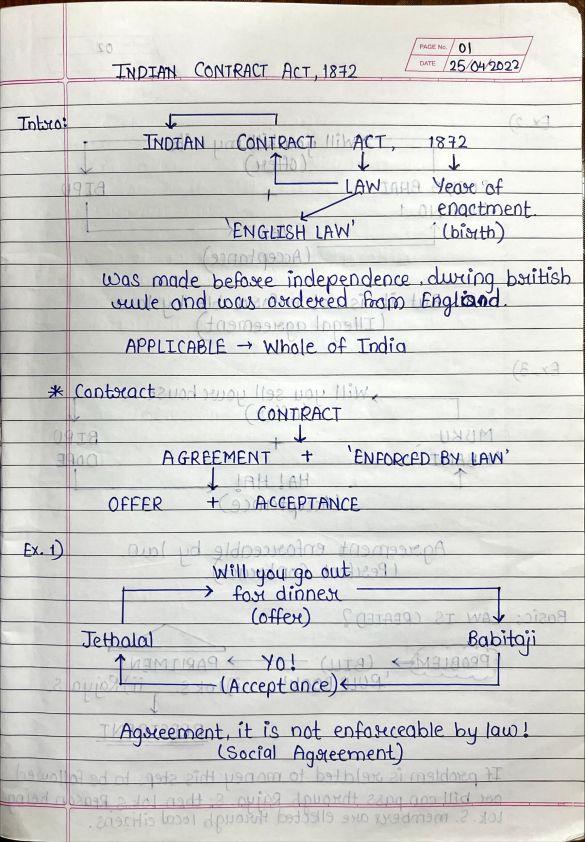 PAGE No. 01
DATE 25/04/2023
INDIAN CONTRACT ACT, 1872
Intro:
INDIAN CONTRACT ACT, 1872
LAW Year of
enactment.
'ENGLISH LAW' (birth)
was made before independence, during british
rule and was ordered from England.
APPLICABLE → Whole of India
* Contract
CONTRACT
AGREEMENT + 'ENFORCED BY LAW'
OFFER + ACCEPTANCE
Ex. 1)
Will you go out
for dinner
(offer)
Jethalal Babitaji
YO!
(Acceptance)
Agreement, it is not enforceable by law!
(Social Agreement)